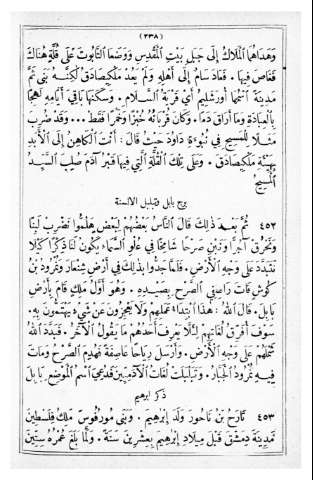 (٢٣٨)
وهداهما الملاك إلى جبل بيت المقدس ووضعا التابوت على قلة هناك
فغاص فيها. فعاد سام إلى أهله ولم يعد ملكيصادق لكنه بنى ثم
مدينة اسمها أورشليم أي قرية السلام. وسكنها باقي أيامه لهجا
بالعبادة وما أراق دما. وكان قربانه خبزا وخمرا فقط... وقد ضرب
مثلا للمسيح في نبوءة داود حيث قال: أنت الكاهن إلى الأبد
بهيئة ملكيصادق. وعلى تلك القلة التي فيها قبر آدم صلب السيد
المسيح
برج بابل فتبلبل الالسنة
٤٥٢ ثم بعد ذلك قال الناس بعضهم لبعض هلموا نضرب لبنا
ونحرق آجرا ونبن صرحا شامخا في علو السماء يكون لنا ذكرا كيلا
نتبدد على وجه الأرض. فلما جدوا بذلك في أرض شنعار ونمرود بن
كوش قات راصفي الصرح بصيده. وهو أول ملك قام بأرض
بابل. قال الله: هذا ابتداء عملهم ولا يعجزون عن شيء يهتمون به.
سوف أفرق لغاتهم لئلا يعرف أحدهم ما يقول الآخر. فبدد الله
شملهم على وجه الأرض. وأرسل رياحا عاصفة فهدم الصرح ومات
فيه نمرود الجبار. وتبلبلت لغات الآدميين فدعي اسم الموضع بابل
ذكر ابرهيم
٤٥٣ تارح بن ناحور ولد إبرهيم. وبنى مورفوس ملك فلسطين
مدينة دمشق قبل ميلاد إبرهيم بعشرين سنة. ولما بلغ عمره ستين